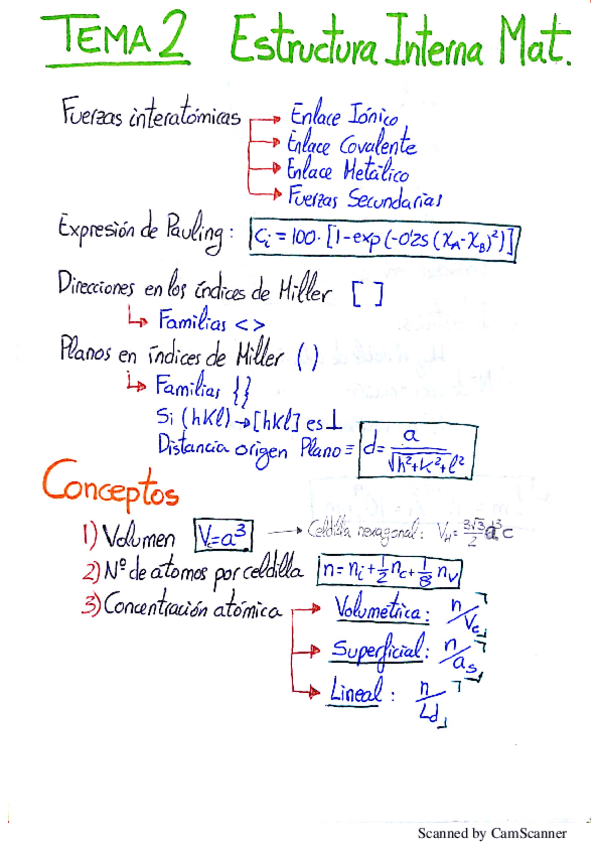 TEMA 2 Estructura Interna Mat.
Fuerzas interatómicas
Enlace Iónico
Enlace Covalente
Enlace Metálico
Fuerzas Secundarias
Expresión de Pauling: Ci = 100·[1-exp(-0'25(XA-XB)²)]
Direcciones en los índices de Miller [ ]
↳ Familias < >
Planos en índices de Miller ( )
↳ Familias { }
Si (hKl) → [hKl] es ⊥
Distancia origen Plano ≡ d = a/√h²+K²+l²
Conceptos
1) Volumen Vc=a³ → Celdilla hexagonal: VH = 3√3/2 a³c
2) Nº de atomos por celdilla n = ni + 1/2 nc + 1/8 nv
3) Concentración atómica
Volumetrica: n/Vc
Superficial: n/as
Lineal: n/Ld
Scanned by CamScanner